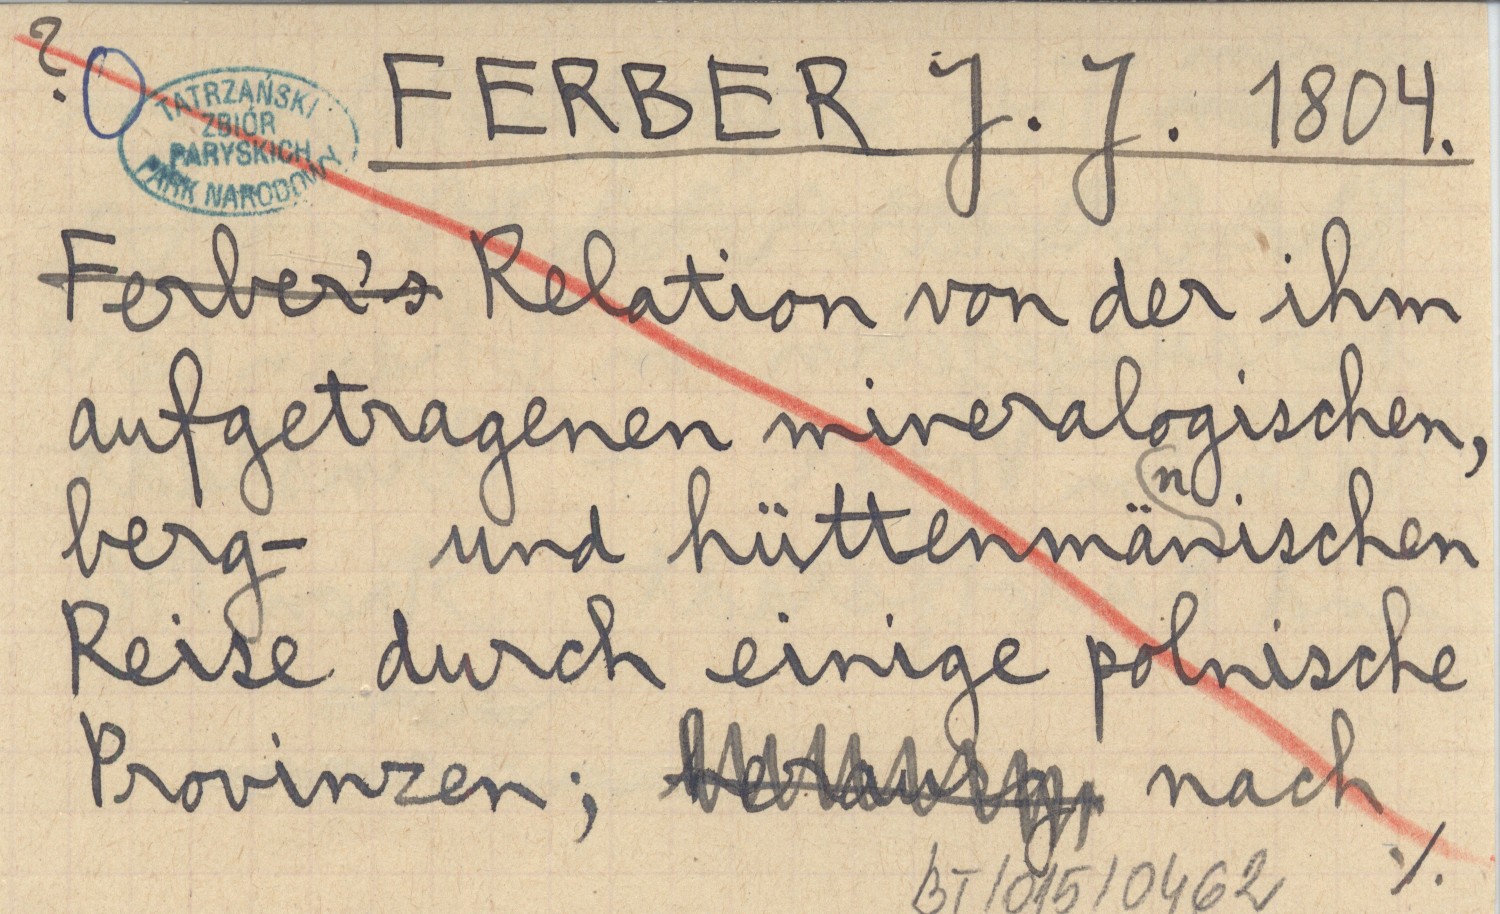 ?
TATRZAŃSKI
ZBIÓR
PARYSKICH
PARK NARODOWY
FERBER J. J. 1804.
Ferber's Relation von der ihm
aufgetragenen mineralogischen,
berg- und hüttenmännischen
Reise durch einige polnische
Provinzen; herausg. nach
./.
BT/015/0462